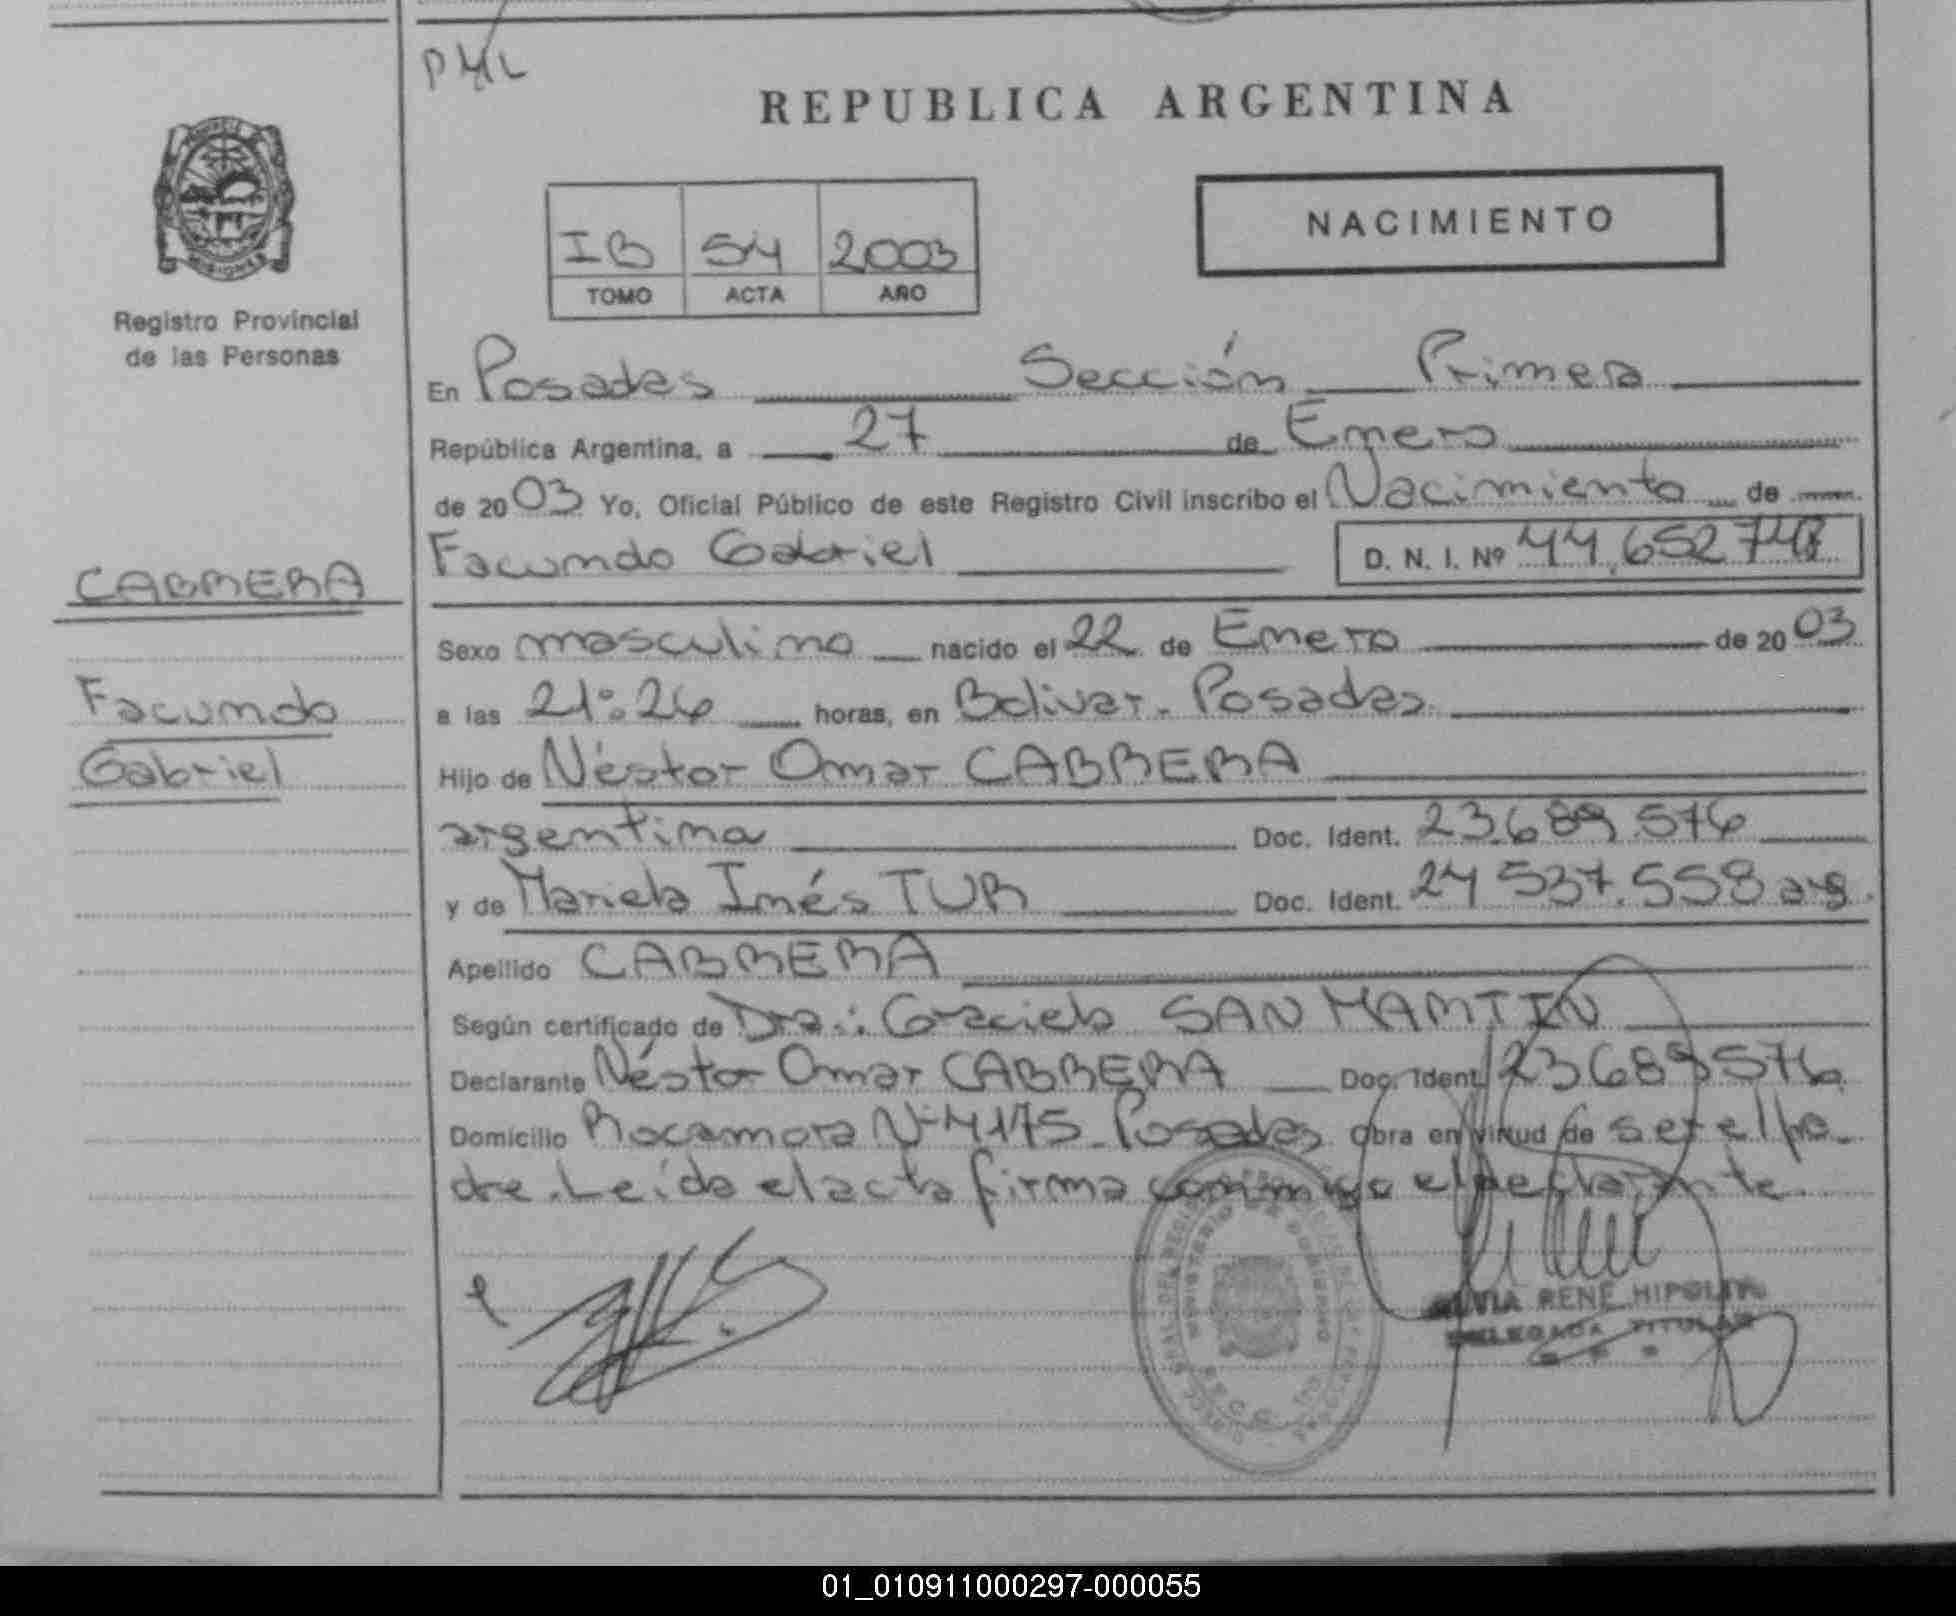 REPUBLICA ARGENTINA
MISIONES
Registro Provincial
de las Personas
NACIMIENTO
IB 54 2003
TOMO ACTA AÑO
En Posadas Sección Primera
República Argentina, a 27 de Enero
de 2003 Yo, Oficial Público de este Registro Civil inscribo el Nacimiento de
Facundo Gabriel D. N. I. Nº
CABRERA
Facundo
Gabriel
Sexo masculino nacido el 22 de Enero de 2003
a las 21:26 horas, en Bolivar. Posadas
Hijo de Néstor Omar CABRERA
argentina Doc. Ident. 23.689.576
y de Mariela Inés TUR Doc. Ident. 24 537.558 arg.
Apellido CABRERA
Según certificado de Dra.: Graciela SAN MARTIN
Declarante Néstor Omar CABRERA Doc. Ident. 23689576
Domicilio Rocamora Nº 4175 Posadas Obra en virtud de ser el pa-
dre. Leída el acta firma conmigo el declarante
RENÉ HIPOLITO
DELEGADA TITULAR
01_010911000297-000055